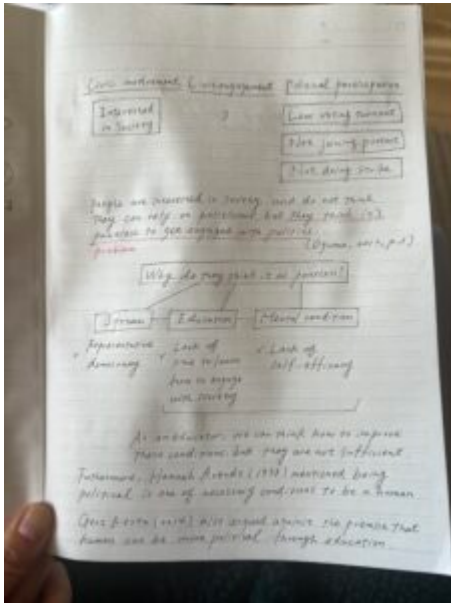 Civic involvement Political participation
Interested
in society
?
Low voting turnout
Not joining protest
Not doing strike
People are interested in society and do not think
they can rely on politicians but they think it's
pointless to get engaged with politics.
problem
Why do they think it is pointless?
System Education Mental condition
Representative
democracy
Lack of
time to learn
how to engage
with society
Lack of
self-efficacy
As an educator, we can think how to improve
these conditions but they are not sufficient
Furthermore, Hannah Arendt mentioned being
political is one of necessary conditions to be a human.
Gert Biesta also argued against the premise that
human can be more political through education.